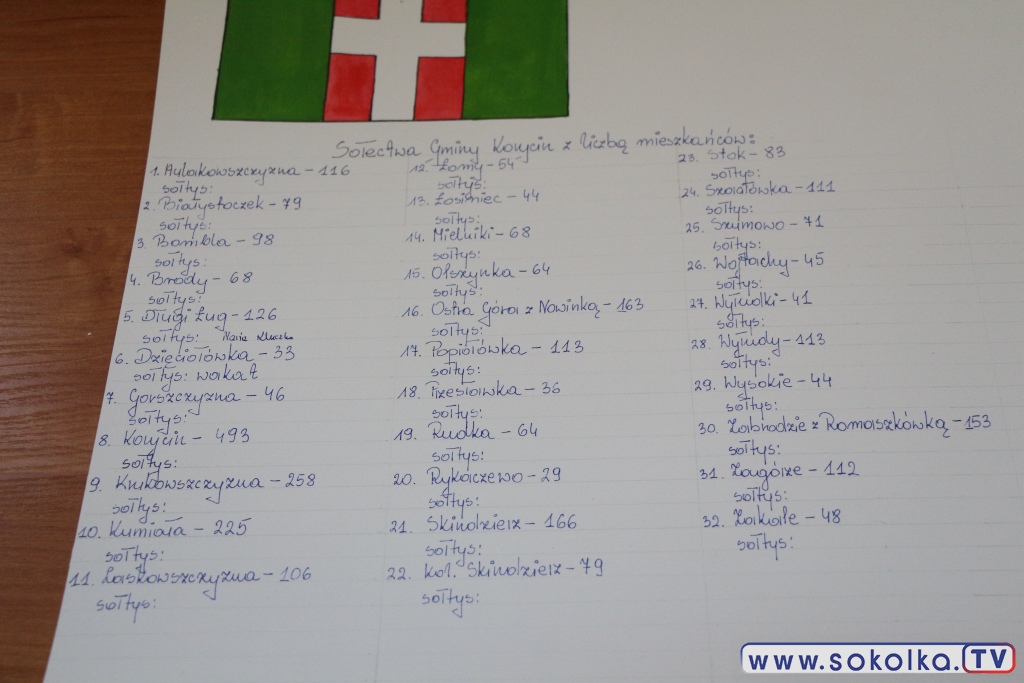 Sołectwa Gminy Korycin z liczbą mieszkańców:
1. Aulakowszczyzna - 116
sołtys:
2. Białystoczek - 79
sołtys:
3. Bombla - 98
sołtys:
4. Brody - 68
sołtys:
5. Długi Ług - 126
sołtys: Maria
6. Dzięciołówka - 33
sołtys: wakat
7. Gorszczyzna - 46
sołtys:
8. Korycin - 493
sołtys:
9. Krukowszczyzna - 258
sołtys:
10. Kumiała - 225
sołtys:
11. Laskowszczyzna - 106
sołtys:
12. Łomy - 54
sołtys:
13. Łosiniec - 44
sołtys:
14. Mielniki - 68
sołtys:
15. Olszynka - 64
sołtys:
16. Ostra Góra z Nowinką - 163
sołtys:
17. Popiołówka - 113
sołtys:
18. Przesławka - 36
sołtys:
19. Rudka - 64
sołtys:
20. Rykaczewo - 29
sołtys:
21. Skindzierz - 166
sołtys:
22. Kol. Skindzierz - 79
sołtys:
23. Stok - 83
sołtys:
24. Szaciłówka - 111
sołtys:
25. Szumowo - 71
sołtys:
26. Wojtachy - 45
sołtys:
27. Wyłudki - 41
sołtys:
28. Wyłudy - 113
sołtys:
29. Wysokie - 44
sołtys:
30. Zabrodzie z Romaszkówką - 153
sołtys:
31. Zagórze - 112
sołtys:
32. Zakale - 48
sołtys:
www.sokolka.TV